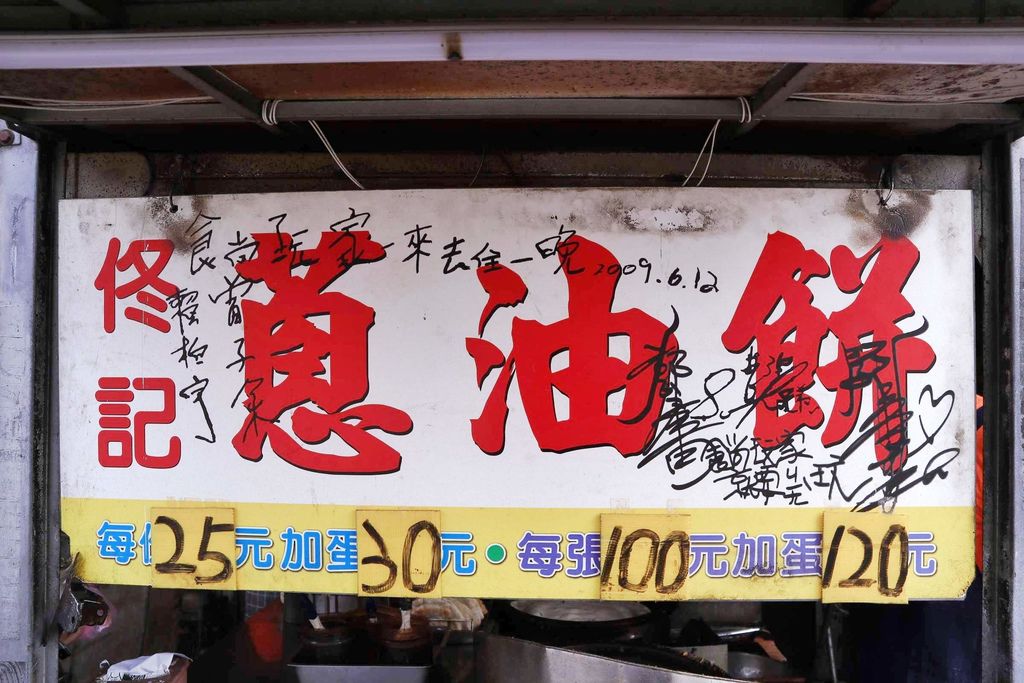 佟記
蔥油餅
食尚玩家-來去住一晚 2009.6.12
嘗
賴柏宇
食尚玩家
每 25 元加蛋 30 元・每張 100 元加蛋 120 元